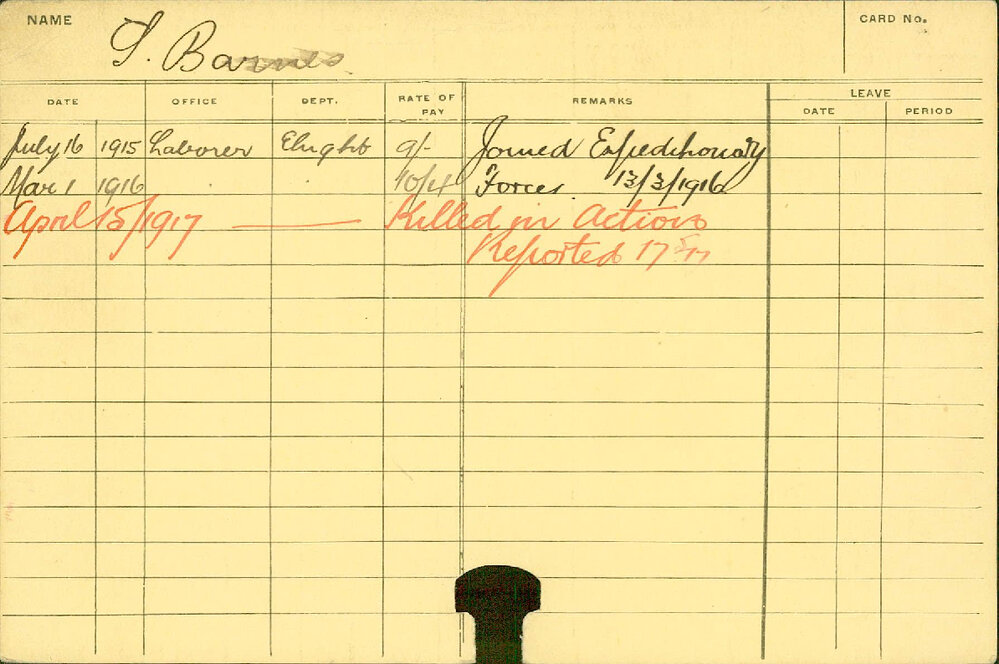 NAME S. Barnes CARD No.
DATE OFFICE DEPT. RATE OF PAY REMARKS LEAVE
DATE PERIOD
July 16 1915 Laborer Elught 9/- Joined Expeditionary
Mar 1 1916 10/4 Forces. 13/3/1916
April 15/1917 — Killed in Action
Reported 17